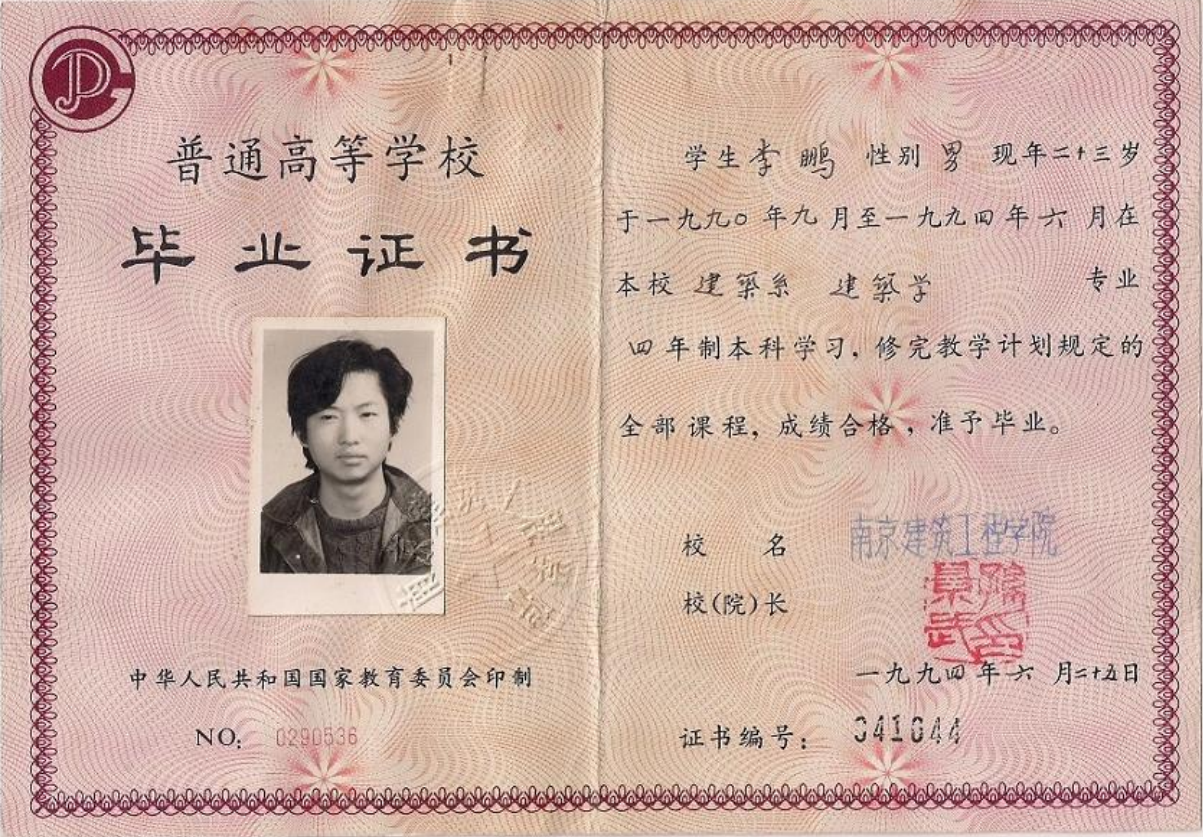 普通高等学校
毕业证书
中华人民共和国国家教育委员会印制
NO: 0290536
学生李鹏 性别 男 现年二十三岁
于一九九〇年九月至一九九四年六月在
本校 建築系 建築学 专业
四年制本科学习,修完教学计划规定的
全部课程,成绩合格,准予毕业。
校名 南京建筑工程学院
校(院)长
一九九四年六月二十五日
证书编号: 941044